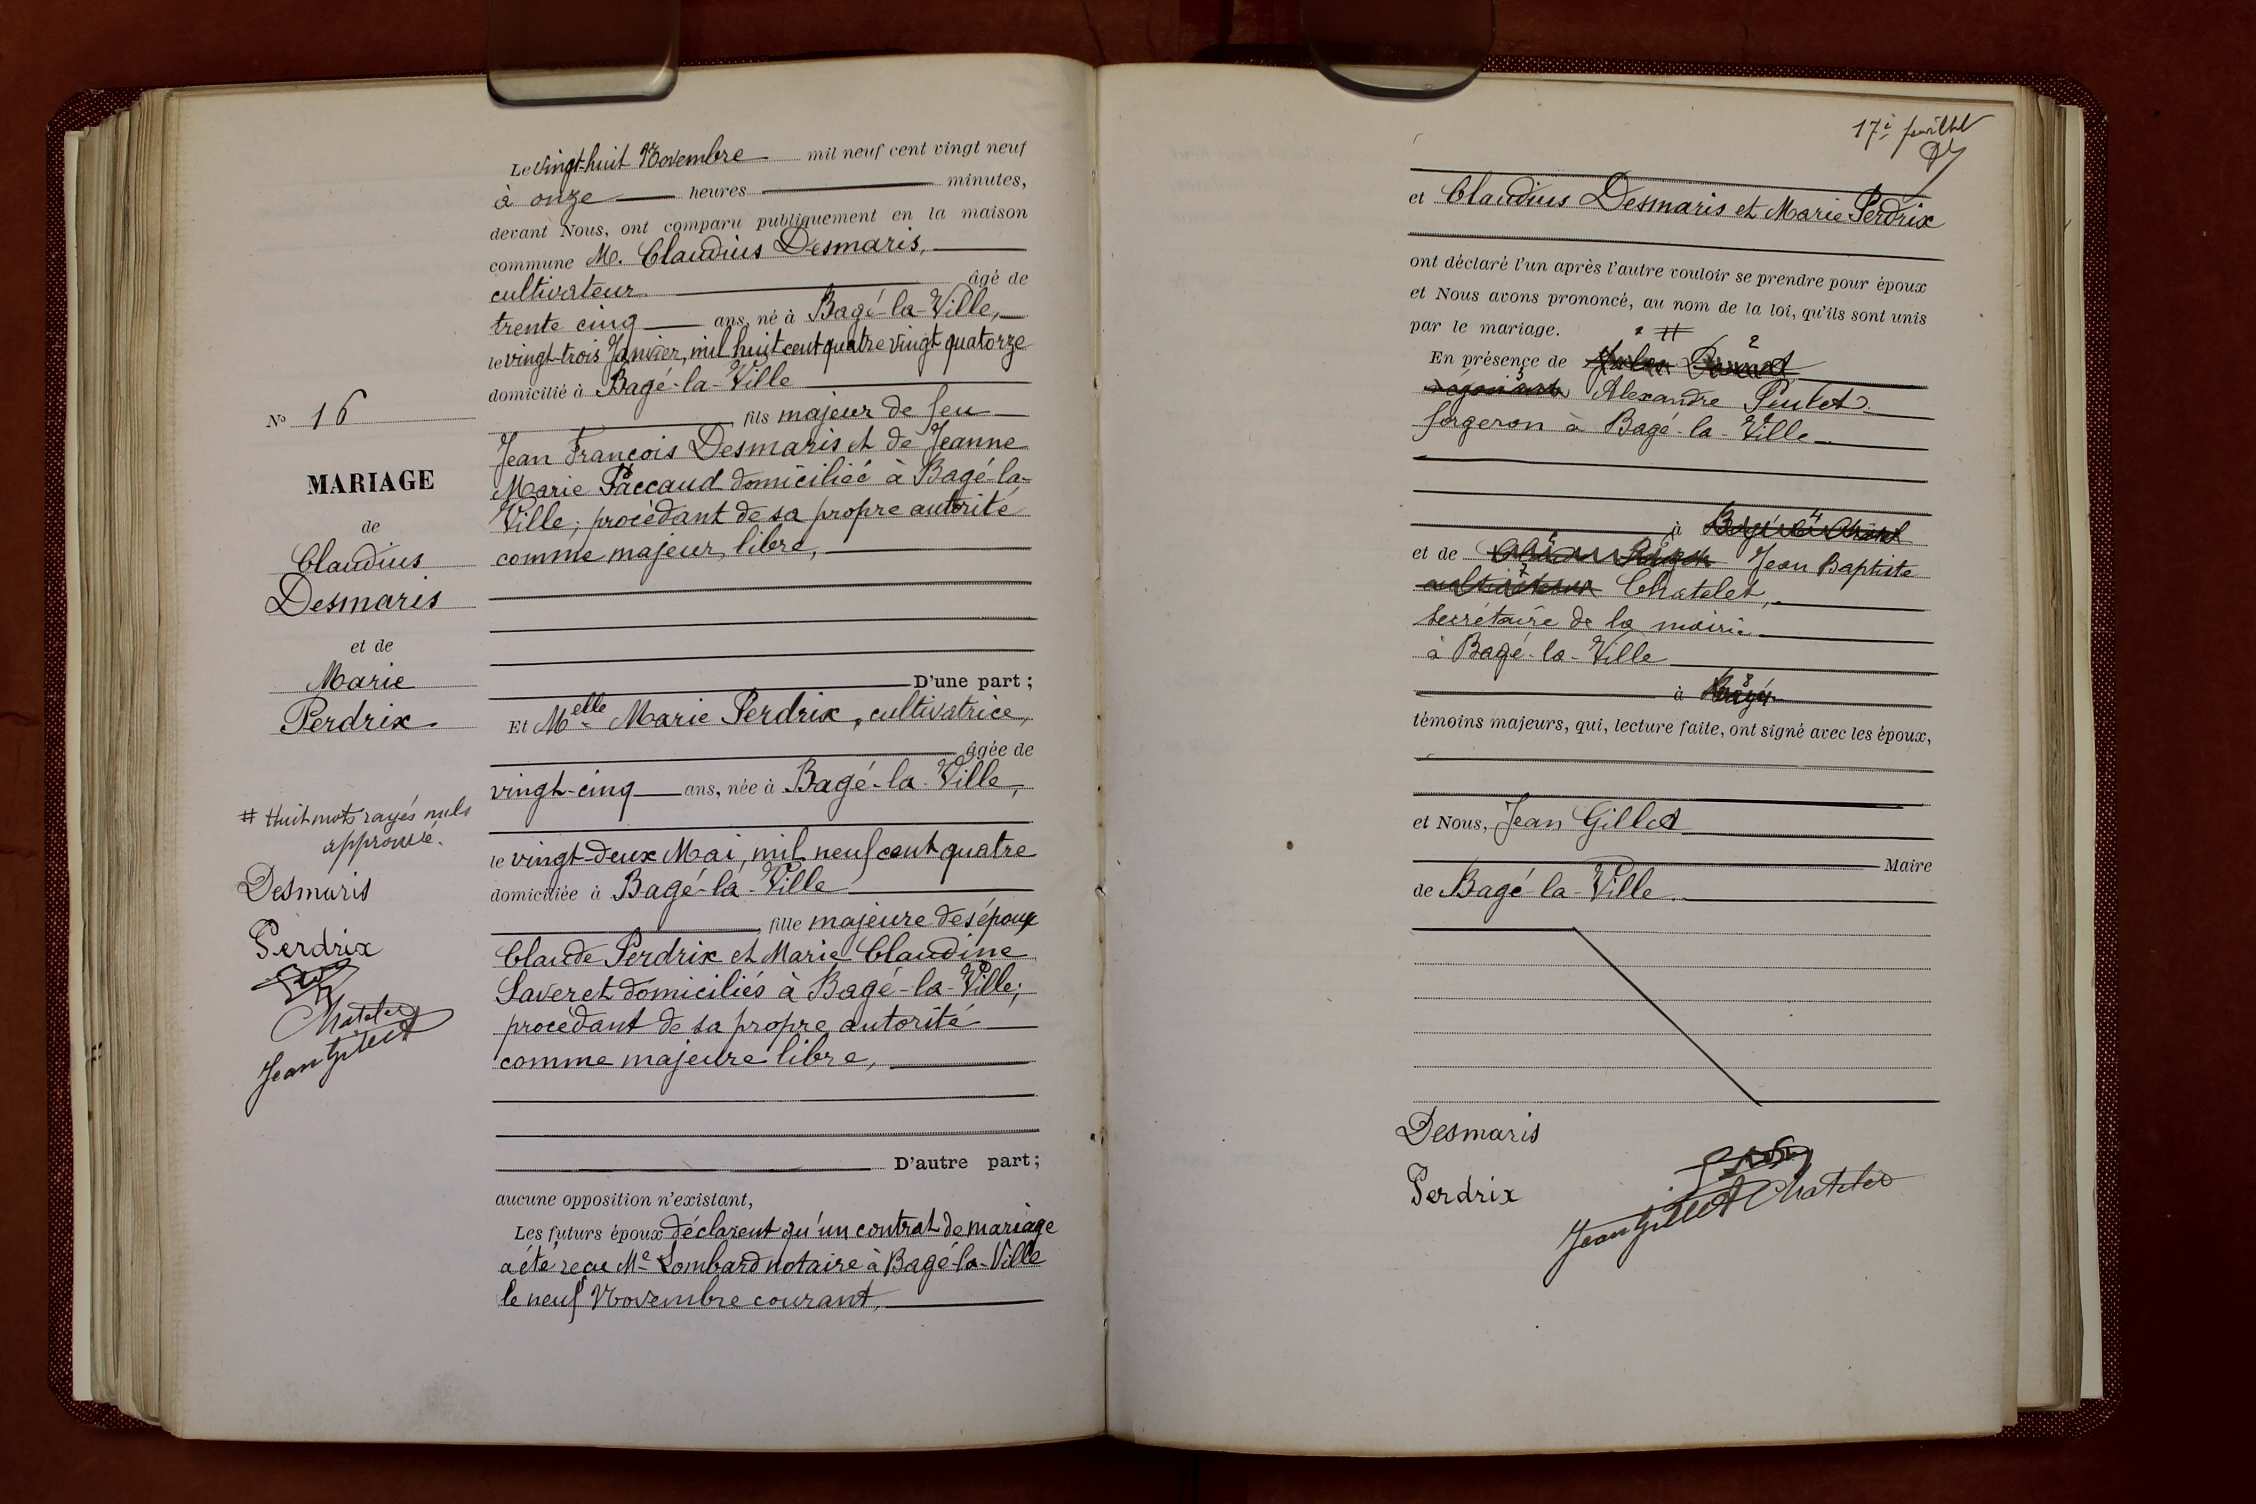 Le vingt-huit Novembre mil neuf cent vingt neuf
à onze heures minutes,
devant Nous, ont comparu publiquement en la maison
commune M. Claudius Desmaris,
cultivateur âgé de
trente cinq ans, né à Bagé-la-Ville,
le vingt-trois Janvier, mil huit cent quatre vingt quatorze
domicilié à Bagé-la-Ville
fils majeur de feu
Jean François Desmaris et de Jeanne
Marie Paccaud domiciliée à Bagé-la-
Ville; procédant de sa propre autorité
comme majeur libre,
D'une part;
Et Melle Marie Perdrix, cultivatrice,
âgée de
vingt-cinq ans, née à Bagé-la-Ville,
le vingt-deux Mai, mil neuf cent quatre
domiciliée à Bagé-la-Ville
fille majeure des époux
Claude Perdrix et Marie Claudine
Saveret domiciliés à Bagé-la-Ville;
procédant de sa propre autorité
comme majeure libre,
D'autre part;
aucune opposition n'existant,
Les futurs époux déclarent qu'un contrat de mariage
a été reçu Me Lombard notaire à Bagé-la-Ville
le neuf Novembre courant,
No 16
MARIAGE
de
Claudius
Desmaris
et de
Marie
Perdrix
# Huit mots rayés nuls
approuvé.
Desmaris
Perdrix
Chatelet
Jean Gillet
17è feuillet
et Claudius Desmaris et Marie Perdrix
ont déclaré l'un après l'autre vouloir se prendre pour époux
et Nous avons prononcé, au nom de la loi, qu'ils sont unis
par le mariage. #
En présence de 2
3 Alexandre Peulet
forgeron à Bagé-la-Ville
à 4
et de Jean Baptiste
7 Chatelet,
secrétaire de la mairie
à Bagé-la-Ville
à 8
témoins majeurs, qui, lecture faite, ont signé avec les époux,
et Nous, Jean Gillet
Maire
de Bagé-la-Ville
Desmaris
Perdrix
Chatelet
Jean Gillet